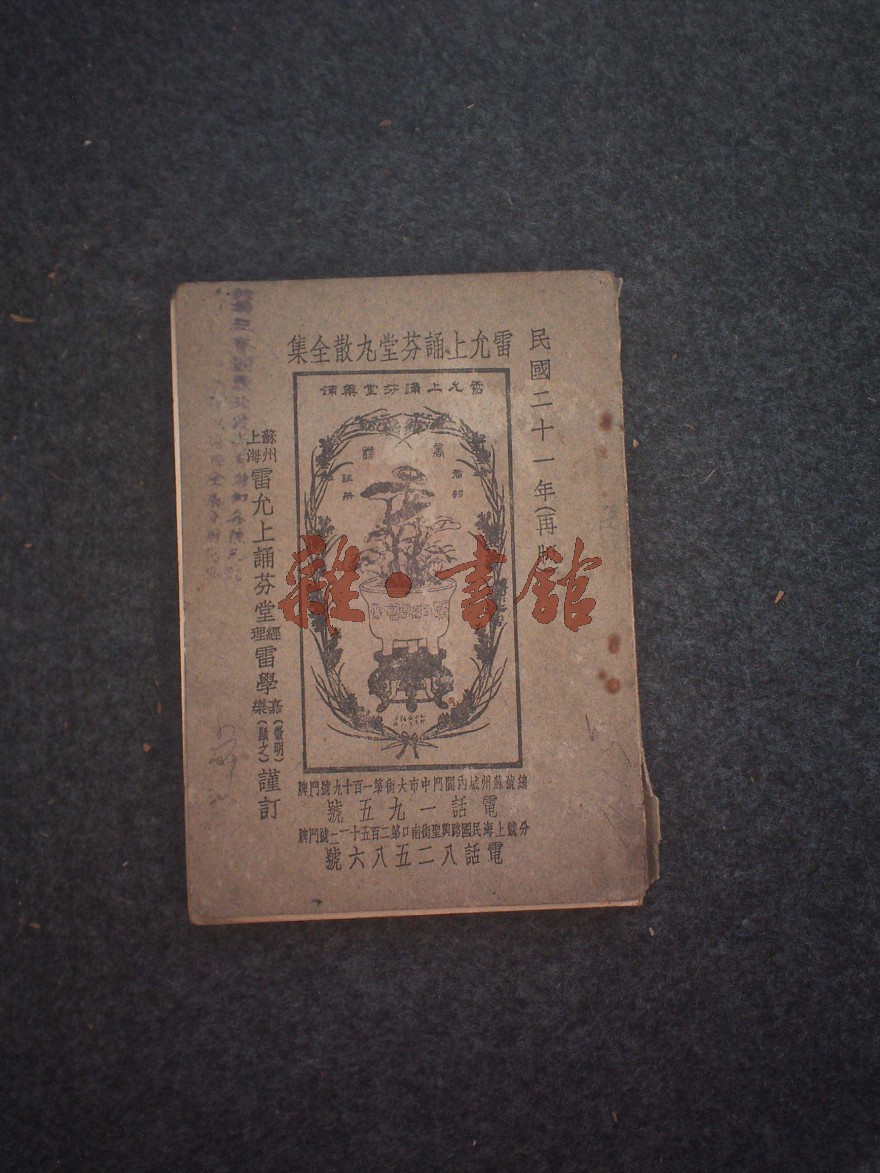 民國二十一年(再版
雷允上誦芬堂丸散全集
雷允上誦芬堂藥鋪
註册
雜·書館
總號蘇州城內閶門中市大街第一百十九號門牌
電話一九五號
分號上海民國路興聖街南口第二百五十一二號門牌
電話八二五八六號
蘇州上海雷允上誦芬堂經理雷學嘉(徵明)樂(顯之)謹訂